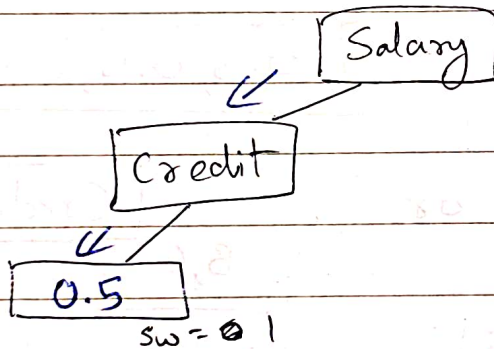 Salary
Credit
0.5
sw = 1